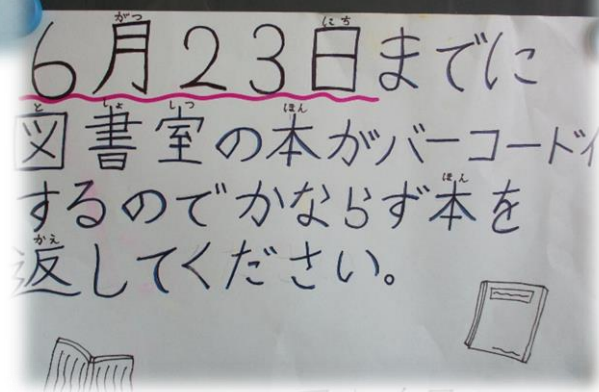 6月23日までに
図書室の本がバーコードイ
するのでかならず本を
返してください。